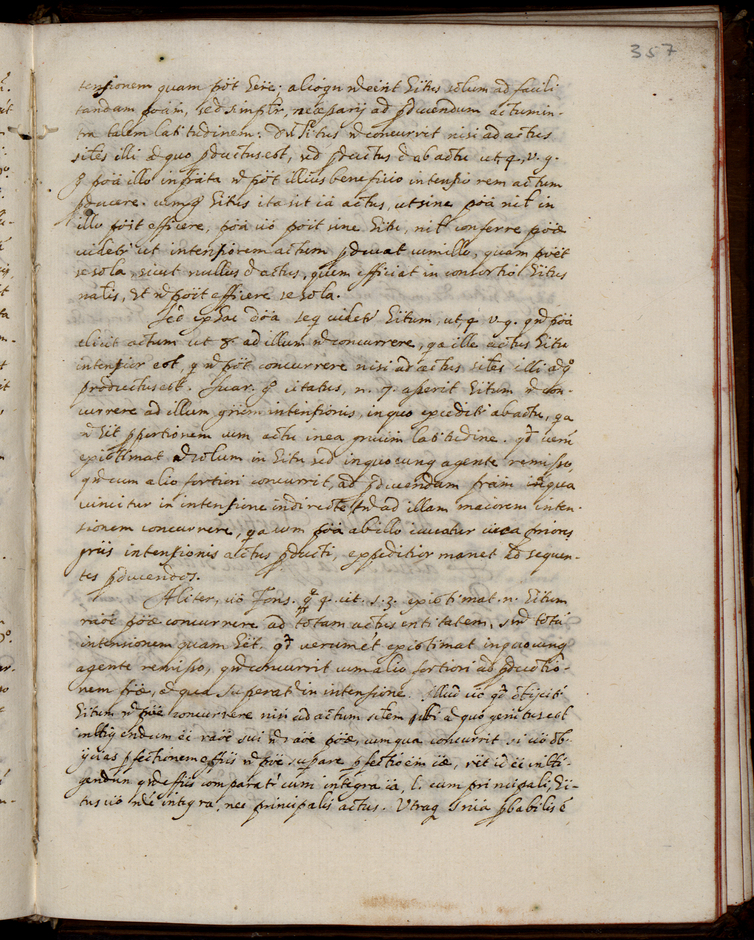 357
tensionem quam pöt hëre; alioqu n̄ eent hitus solum ad facili
tandam poäm, sed simplr, necessarij ad pducendum actum in-
tra talem latitudinem. hitus n̄ concurrit nisi ad actus
siles illi a quo pductus est, sed pductus ē ab actu ut 4. v. g.
g° poä illo informata n̄ pöt illius beneficio intensiorem actum
pducere. cumq hitus ita sit ca actus, ut sine poä nil in
illo posit efficere, poä uö posit sine hitu, nil conferre poæ
uidetr ut intensiorem actum pducat cum illo, quam posset
se sola, sicut nullus ē actus, quem efficiat in consortio hitus
nalis, et n̄ posit efficere se sola.
ex hac doä seq uidetr hitum, ut 4 v. g. qn̄ poä
elicit actum ut 8. ad illum n̄ concurrere, qa ille actus hitu
intensior est, q n̄ pöt concurrere nisi ad actus siles illi a q°
productus est. Suar. g° citatus, n. 7. aserit hitum n̄ con-
currere ad illum intensionis, in quo excedit ab actu, qa
n̄ hët pportionem cum actu in ea latitudine. qd uerū
existimat n̄ solum in hitu sed in quocunq agente remisso,
qn̄ cum alio fortiori concurrit, ad pducendum in qua
uincitur in intensione indirecte tn̄ ad illam maiorem inten-
sionem concurrere, qa cum poä ab illo iuuatur circa priores
intensionis actus pducti, expeditior manet ad sequen-
tes pducendos.
Aliter, uö Fons. q. 4. cit. s. 3. existimat. n. hitum
raöe poæ concurrere ad totam actus entitatem, et totā
intensionem quam hët. qd uerum ēt existimat in quocunq
agente remisso, qn̄ concurrit cum alio fortiori ad pductio-
nem a qua superatr in intensione. illud uö qd obijciti
hitum n̄ pöe concurrere nisi ad actum silem sibi a quo genitus est
intelligendum ēē raöe sui n̄ raöe poæ, cum qua concurrit. si uö ob-
ijcias pfectionem effus n̄ pöe supare pfectioem cæ, id ēē intelli-
gendum qn̄ effus comparatr cum integra cä, l. cum principali, hi-
tus uö n̄ ēē integra, nec principalis actus. Utraq snia pbabilis ē